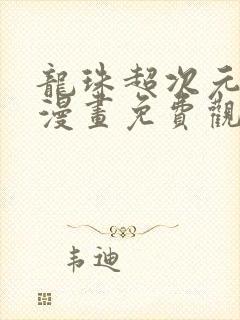 龍珠超次元
漫畫免費觀
韦迪